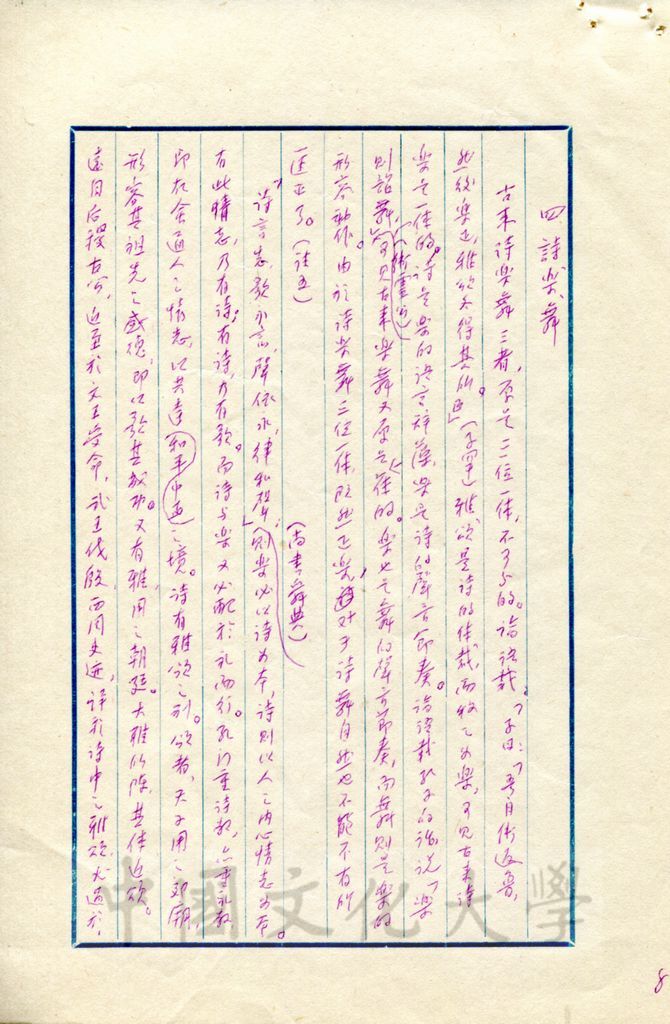 四 詩樂舞
古來詩樂舞三者，原是三位一体，不可分的。論語載「子曰：「吾自衛返魯，
然後樂正，雅頌各得其所」。（子罕）雅頌是詩的体裁，而收之为樂，可見古來詩
樂是一体的。詩是樂的語言辞藻，樂是詩的聲音節奏。論語載孔子的話說「樂
則韶舞」（衛靈公）可見古來樂舞又原是一体的。樂也是舞的聲音節奏，而舞則是樂的
形容動作。由於詩樂舞三位一体，既然正樂，对于詩舞自然也不能不有所
匡正了。（註五）
「詩言志，歌永言，聲依永，律和聲」（尚書舜典）則樂必以詩为本，詩則以人之内心情志为本。
有此情志，乃有詩；有詩，方有歌。而詩与樂又必配於礼而行。孔门重詩教，亦重礼教
即在会通人之情志，以共達和平中正之境。詩有雅頌之别。頌者，天子用之郊廟
形容其祖先之盛德，即以歌其成功。又有雅，用之朝廷。大雅所陳，其体近頌。
遠自后稷古公，近至於文王受命，武王伐殷，西周史迹，詳於詩中之雅頌，尤過於
8
中國文化大學